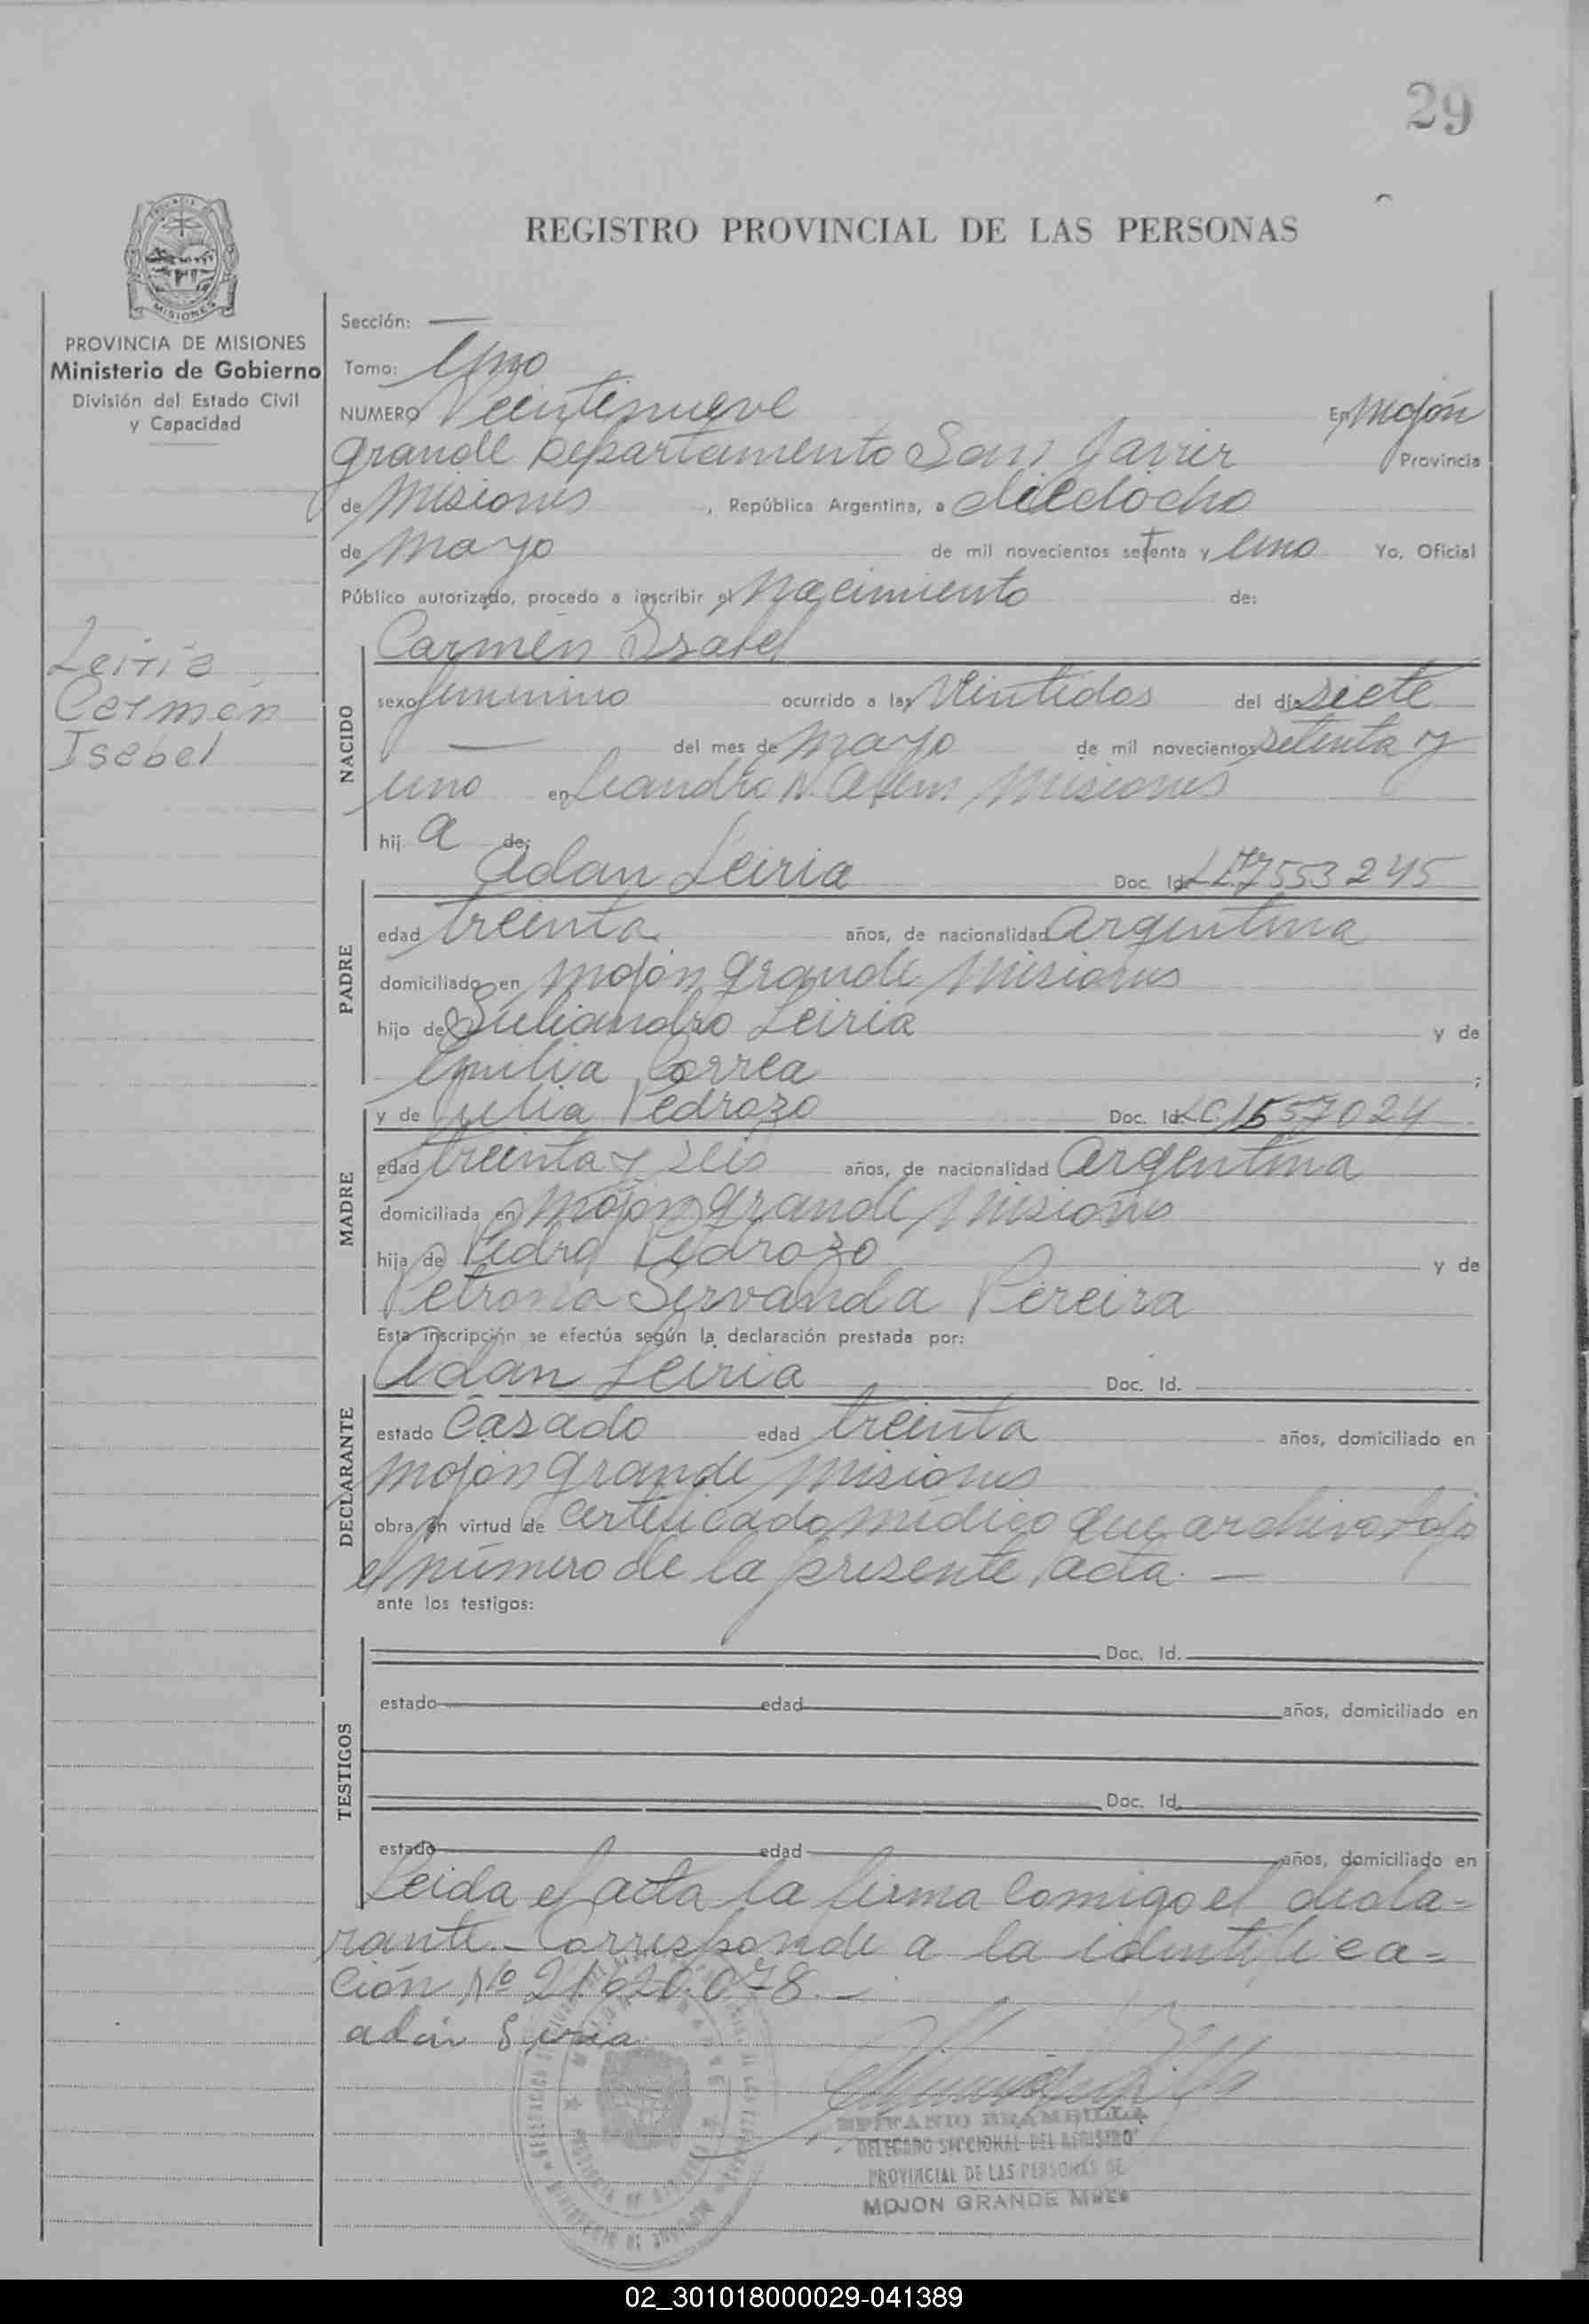 29
REGISTRO PROVINCIAL DE LAS PERSONAS
PROVINCIA DE MISIONES
Ministerio de Gobierno
División del Estado Civil
y Capacidad
Leiria
Carmen
Isabel
Sección: —
Tomo: Uno
NUMERO Veintinueve En Mojón
Grande Departamento San Javier Provincia
de Misiones , República Argentina, a dieciocho
de Mayo de mil novecientos setenta y uno Yo, Oficial
Público autorizado, procedo a inscribir el Nacimiento de:
NACIDO
Carmen Isabel
sexo femenino ocurrido a las veintidos del día siete
— del mes de Mayo de mil novecientos setenta y
uno en Leandro N. Alem Misiones
hij a de:
PADRE
Adan Leiria Doc. Id. L.E 7.553245
edad treinta años, de nacionalidad argentina
domiciliado en Mojón Grande Misiones
hijo de Juliandro Leiria y de
Emilia Correa ;
MADRE
y de Julia Pedrozo Doc. Id. LC 1557024
edad treinta y seis años, de nacionalidad argentina
domiciliada en Mojón Grande Misiones
hija de Pedro Pedrozo y de
Petrona Servanda Pereira
Esta inscripción se efectúa según la declaración prestada por:
DECLARANTE
Adan Leiria Doc. Id.
estado casado edad treinta años, domiciliado en
Mojón Grande Misiones
obra en virtud de certificado médico que archivo bajo
el número de la presente acta. —
ante los testigos:
TESTIGOS
Doc. Id.
estado edad años, domiciliado en
Doc. Id.
estado edad años, domiciliado en
Leida el acta la firma comigo el decla=
rante.- Corresponde a la identifica=
ción Nº 21.620.078.-
adan Liria
EPIFANIO BRAMBILLA
DELEGADO SECCIONAL DEL REGISTRO
PROVINCIAL DE LAS PERSONAS DE
MOJON GRANDE MNES
02_301018000029-041389